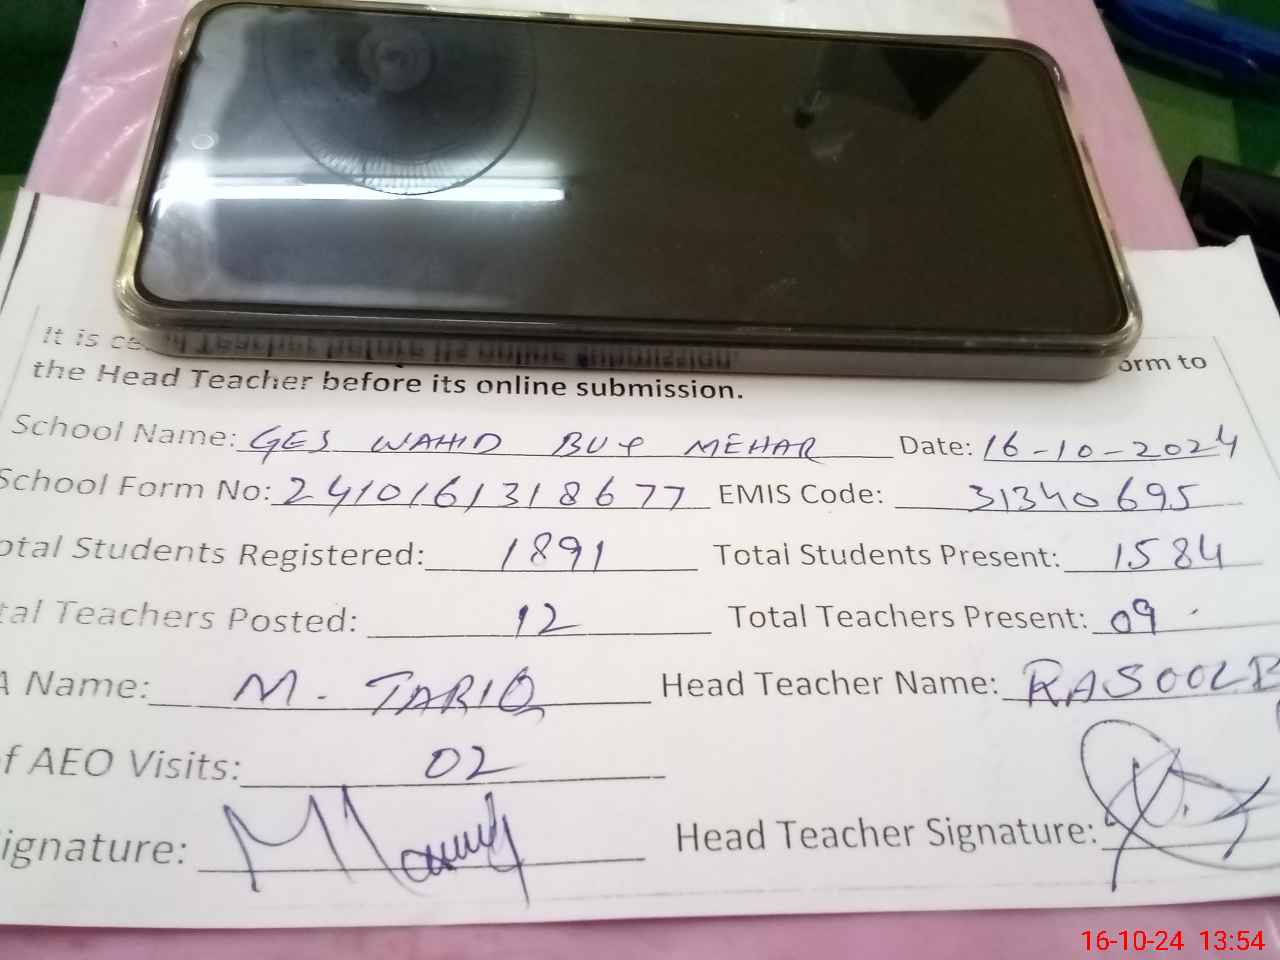 It is ce
orm to
the Head Teacher before its online submission.
School Name: GES WAHID BUX MEHAR Date: 16-10-2024
School Form No: 2410161318677 EMIS Code: 31340695
otal Students Registered: 1891 Total Students Present: 1584
tal Teachers Posted: 12 Total Teachers Present: 09
A Name: M. TARIQ Head Teacher Name: RASOOL B
f AEO Visits: 02
ignature: Head Teacher Signature:
16-10-24 13:54